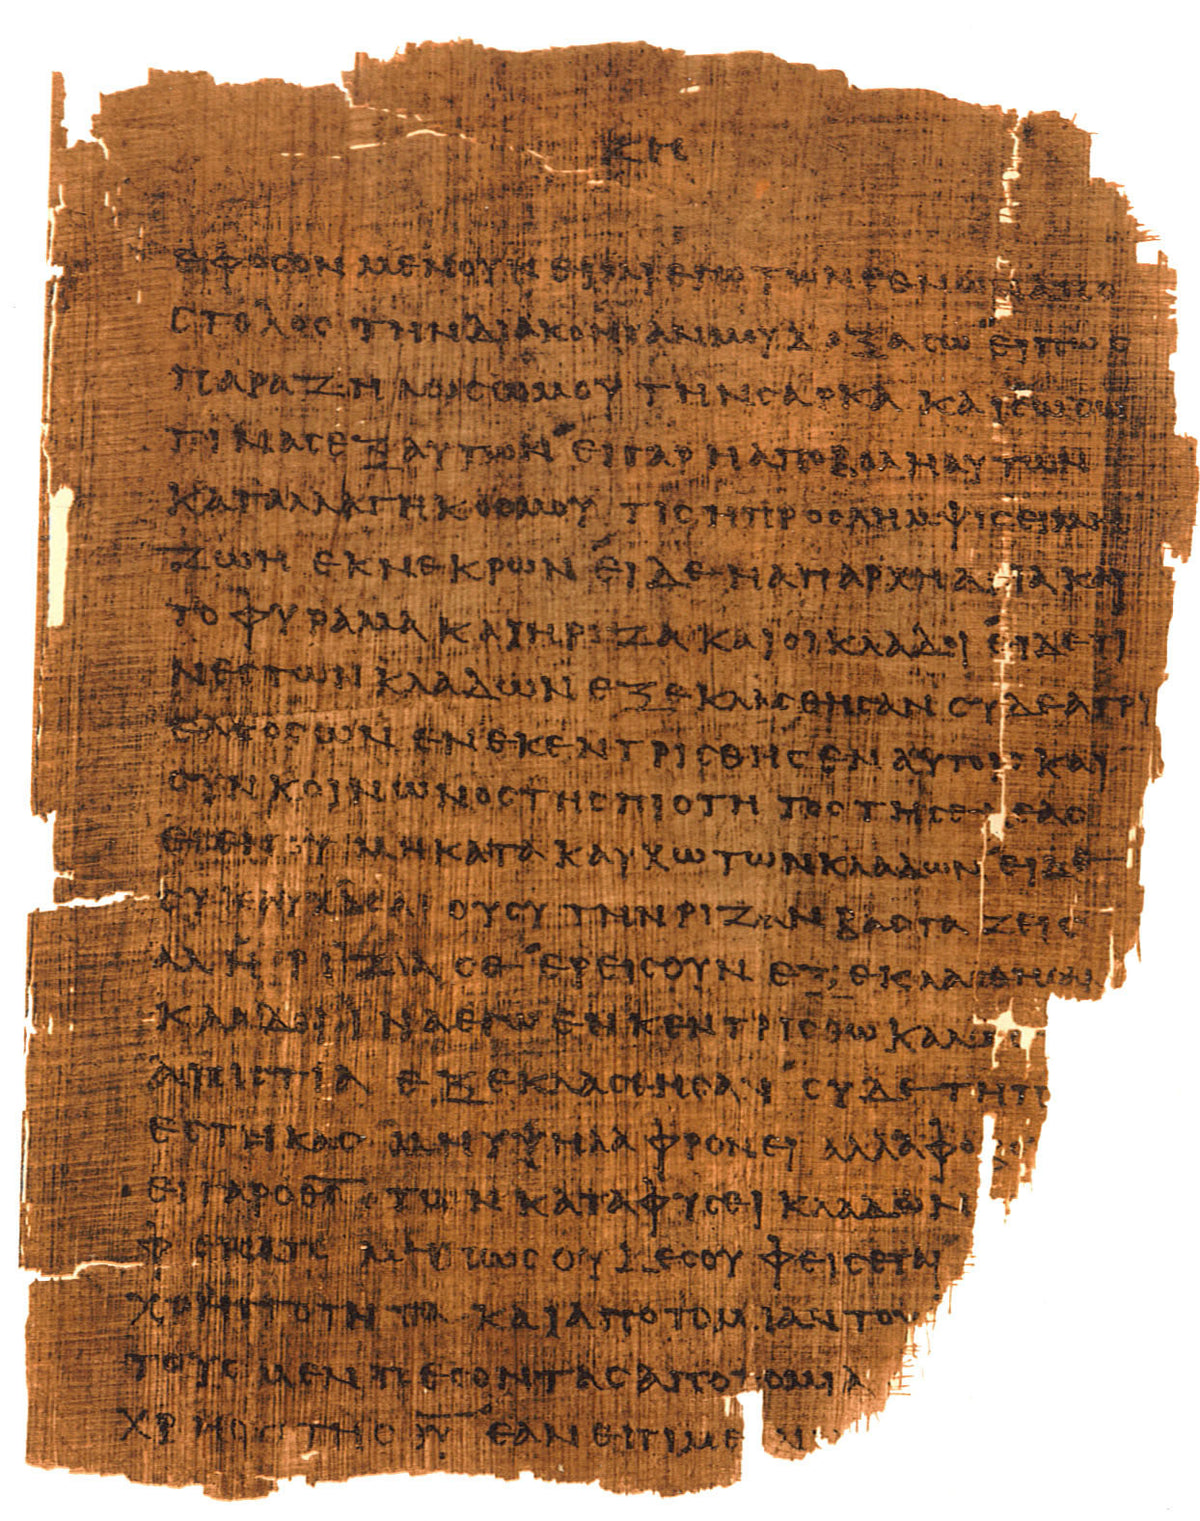 ΚΗ
ΕΦΟϹΟΝ ΜΕΝΟΥΝ ΕΙΜΙ ΕΓΩ ΤΩΝ ΕΘΝΩΝ ΑΠΟ
ϹΤΟΛΟϹ ΤΗΝ ΔΙΑΚΟΝΙΑΝ ΜΟΥ ΔΟΞΑϹΩ ΕΙ ΠΩϹ
ΠΑΡΑΖΗΛΩϹΩ ΜΟΥ ΤΗΝ ϹΑΡΚΑ ΚΑΙ ϹΩϹΩ
ΤΙΝΑϹ ΕΞ ΑΥΤΩΝ ΕΙ ΓΑΡ Η ΑΠΟΒΟΛΗ ΑΥΤΩΝ
ΚΑΤΑΛΛΑΓΗ ΚΟϹΜΟΥ ΤΙϹ Η ΠΡΟϹΛΗΜΨΙϹ ΕΙ ΜΗ
ΖΩΗ ΕΚ ΝΕΚΡΩΝ ΕΙ ΔΕ Η ΑΠΑΡΧΗ ΑΓΙΑ ΚΑΙ
ΤΟ ΦΥΡΑΜΑ ΚΑΙ Η ΡΙΖΑ ΚΑΙ ΟΙ ΚΛΑΔΟΙ ΕΙ ΔΕ ΤΙ
ΝΕϹ ΤΩΝ ΚΛΑΔΩΝ ΕΞΕΚΛΑϹΘΗϹΑΝ ϹΥ ΔΕ ΑΓΡΙ
ΕΛΑΙΟϹ ΩΝ ΕΝΕΚΕΝΤΡΙϹΘΗϹ ΕΝ ΑΥΤΟΙϹ ΚΑΙ
ϹΥΝΚΟΙΝΩΝΟϹ ΤΗϹ ΠΙΟΤΗΤΟϹ ΤΗϹ ΕΛΕΑϹ
ΕΓΕΝΟΥ ΜΗ ΚΑΤΑΚΑΥΧΩ ΤΩΝ ΚΛΑΔΩΝ ΕΙ ΔΕ
ϹΥ ΚΑΥΧΑϹΑΙ ΟΥ ϹΥ ΤΗΝ ΡΙΖΑΝ ΒΑϹΤΑΖΕΙϹ
ΑΛΛ Η ΡΙΖΑ ϹΕ ΕΡΕΙϹ ΟΥΝ ΕΞΕΚΛΑϹΘΗϹΑΝ
ΚΛΑΔΟΙ ΙΝΑ ΕΓΩ ΕΝΚΕΝΤΡΙϹΘΩ
ΑΠΙϹΤΙΑ ΕΞΕΚΛΑϹΘΗϹΑΝ ϹΥ ΔΕ ΤΗ
ΕϹΤΗΚΑϹ ΜΗ ΥΨΗΛΑ ΦΡΟΝΕΙ ΑΛΛΑ
ΕΙ ΓΑΡ Ο Θ̅Ϲ̅ ΤΩΝ ΚΑΤΑ ΦΥϹΕΙ ΚΛΑΔΩΝ
ΜΗ ΠΩϹ ΟΥΔΕ ϹΟΥ ΦΕΙϹΕΤΑΙ
ΧΡΗϹΤΟΤΗΤΑ ΚΑΙ ΑΠΟΤΟΜΙΑΝ ΤΟΥ
ΤΟΥϹ ΜΕΝ ΠΕϹΟΝΤΑϹ ΑΠΟΤΟΜΙΑ
ΕΑΝ